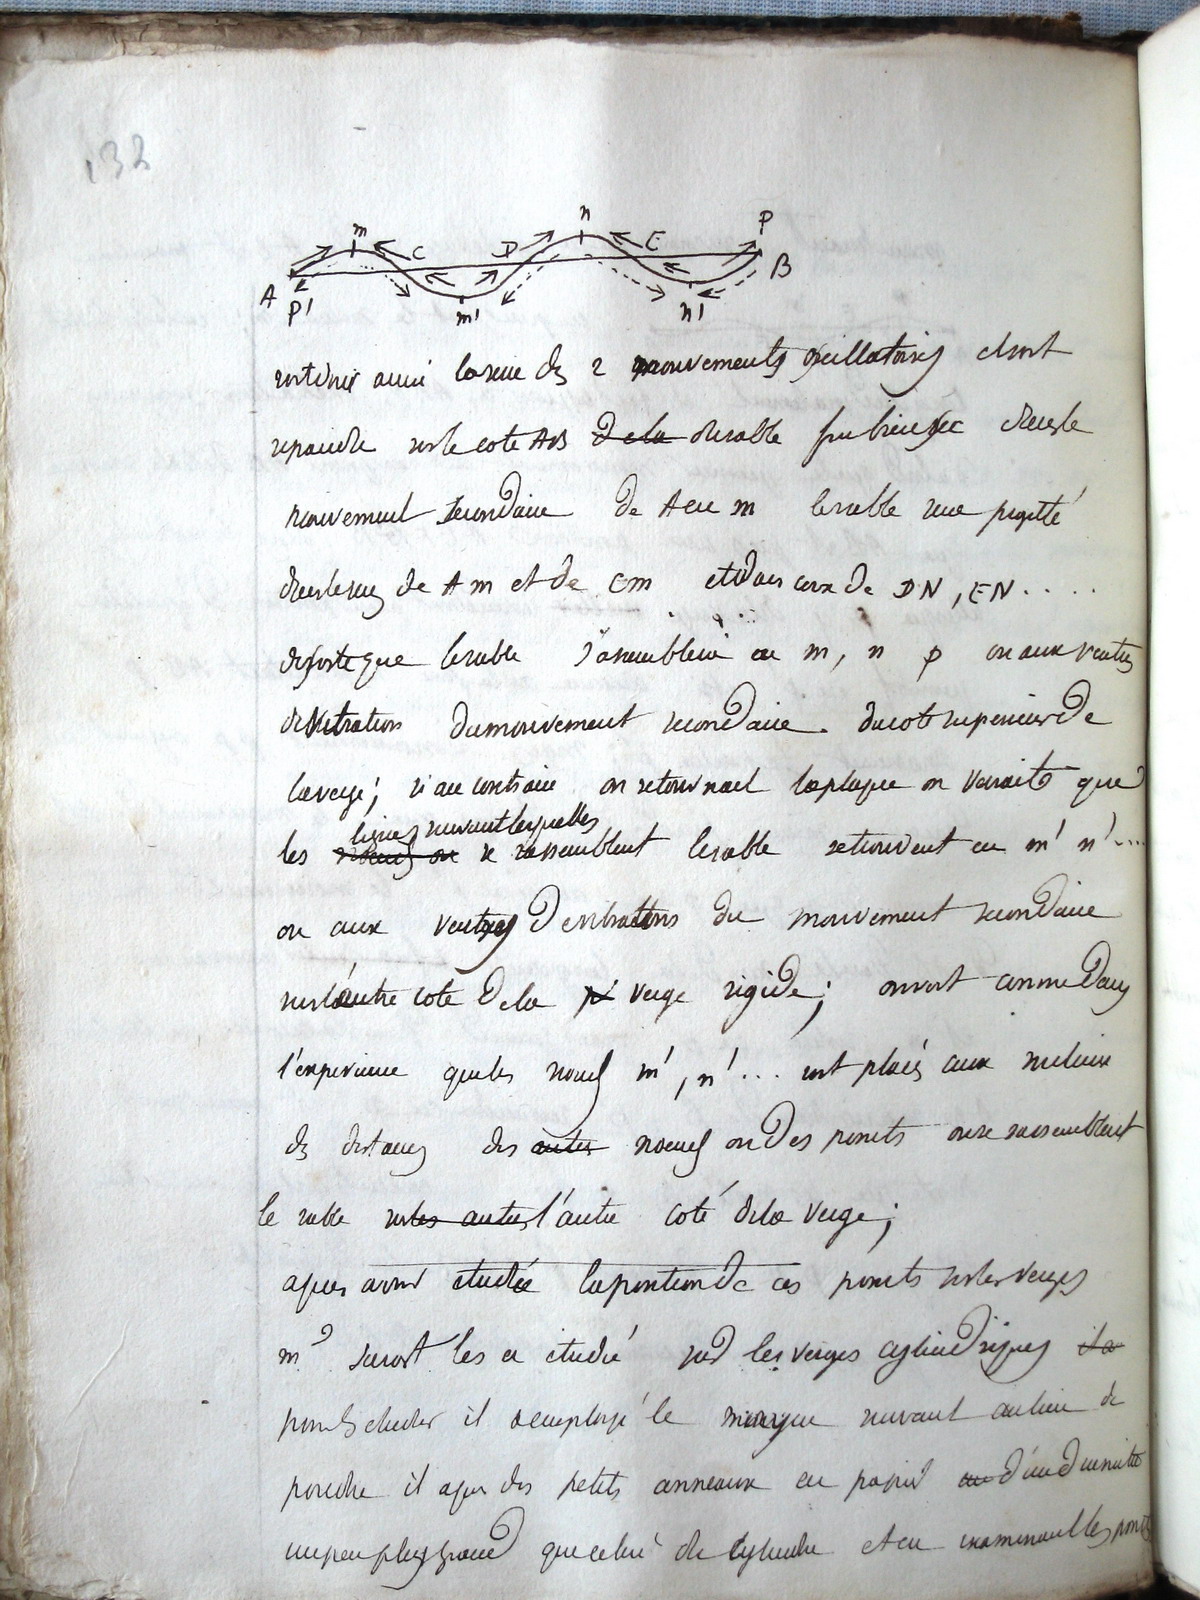 132
m C D n E P
A P' m' n' B
aussi des 2 mouvements oscillatoires
sur le cote AB de la du sable
mouvement secondaire de A en m le sable sera projetté
de A m et de cm et dans ceux de DN, EN .....
de sorte que le sable s'assemblera en m, n p ou aux ventres
de vibration du mouvement secondaire. du coté superieur de
la verge; si au contraire on retournait la plaque on verrait que
lignes suivant lesquelles
les noeuds ou se rassemblent le sable se trouvent en m' n'....
ou aux ventres de vibrations du mouvement secondaire
sur l'autre coté de la verge rigide; on voit comme dans
l'experience que les noeuds m', n'... sont placés aux milieux
des distances des autres noeuds ou des points ou se rassemblent
le sable sur les autres l'autre coté de la verge;
apres avoir etudié la position de ces points sur les verges
mr savart les a etudié sur les verges cylindriques il a
pour les etudier il a employé le moyen suivant au lieu de
poudre il a pris des petits anneaux en papier d'un diametre
un peu plus grand que celui du cylindre et en examinant les points